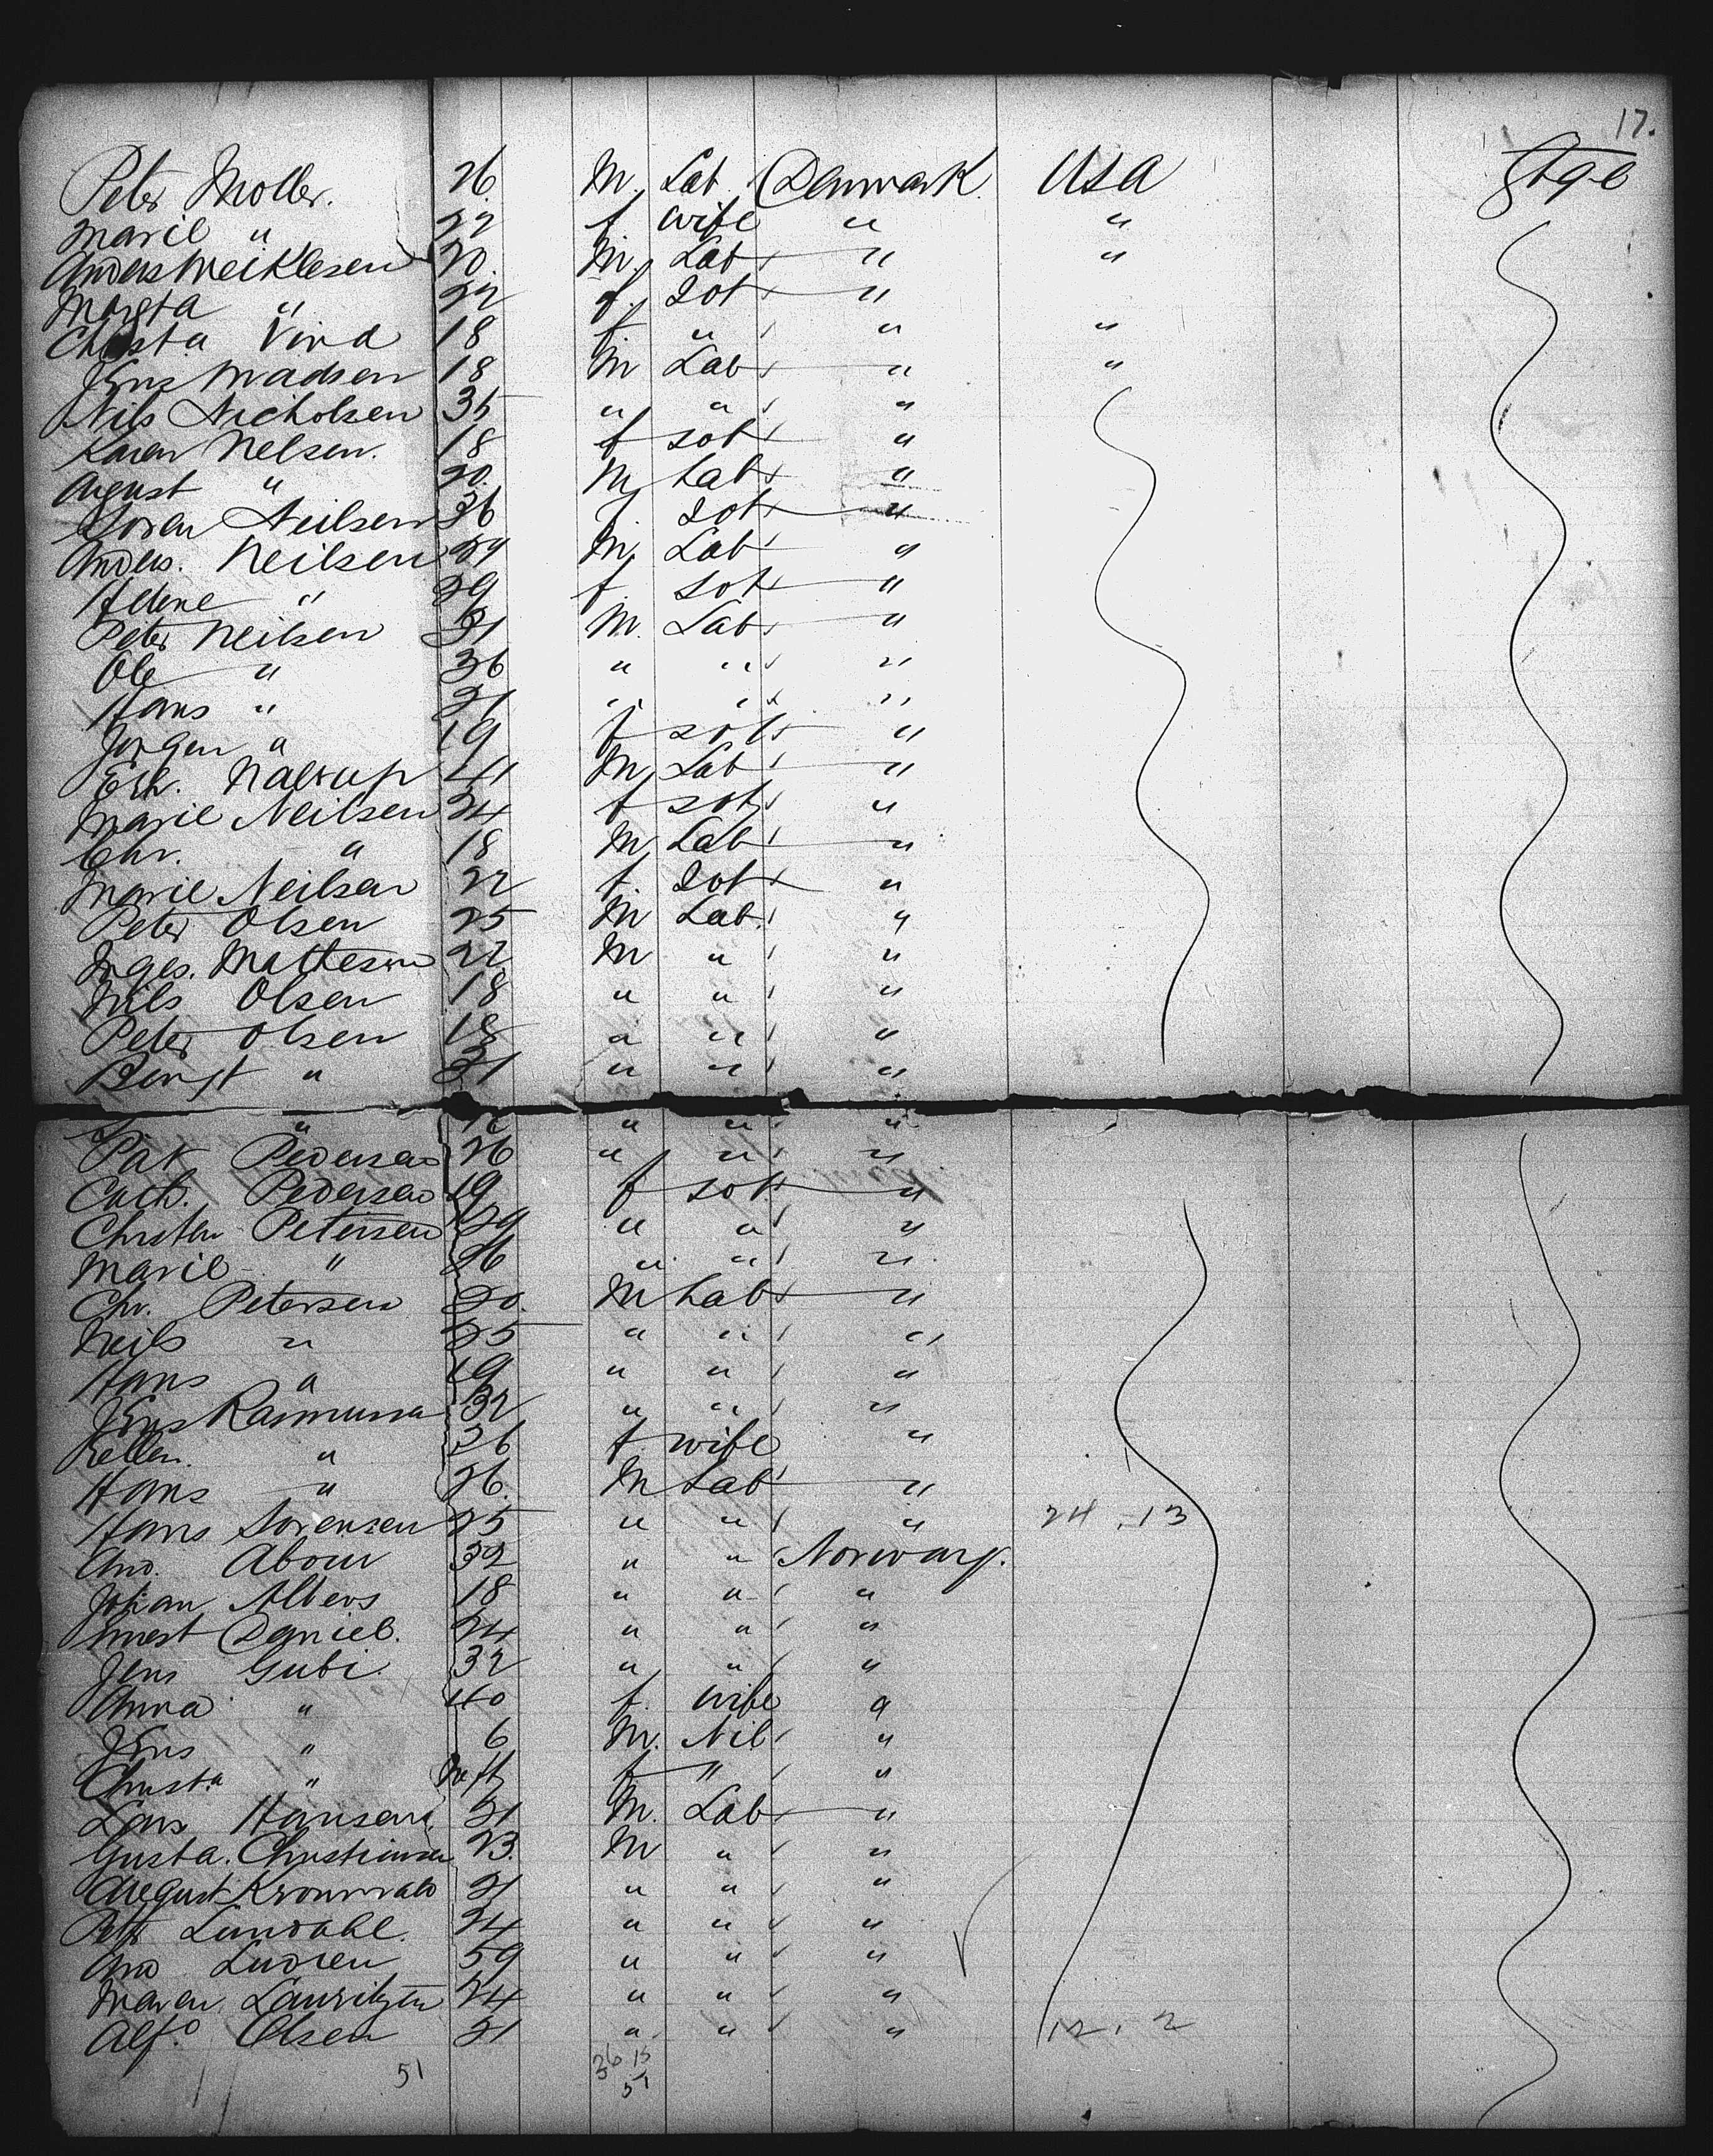 17.
Peter Moller. 26 M. Lab. Denmark USA Stge
Marie " 22 f wife " "
Anders Meiklesen 20. M. Lab " "
Margta " 22 f. Sot "
Christa Vind 18 f " " "
Jens Madsen 18 M Lab " "
Nils Nicholsen 35 " " "
Karen Nelsen. 18 f Sot "
August " 20. M Lab "
Soren Neilsen 36 f Sot "
Anders. Neilsen 29 M. Lab "
Helene " 29 f. Sot "
Peter Neilsen 31 M. Lab "
Ole " 36 " " "
Hans " 21 " " "
Jorgen " 19 f Sot "
Erh. 41 M Lab "
Marie Neilsen 24 f Sot "
Chr. " 18 M Lab "
Marie Neilsen 22 f. Sot "
Peter Olsen 25 M Lab "
Matteson 22 M " "
Nils Olsen 18 " " "
Peter Olsen 18 " " "
Bengt " 31 " " "
" " " "
Pedersen 26 " " "
Cath. Pedersen 19 f Sot "
Christen Petersen 29 " " "
Marie " 26 " " "
Chr. Petersen 20. M Lab "
Neils " 25 " " "
Hans " 19 " " "
Jens Rasmussen 32 " " "
" 26 f wife "
Hans " 26. M Lab "
Hans Sorensen 25 " " " 24 - 13
And. 32 " " Norway.
Johan Albers 18 " " "
Ernest Daniel. 24 " " "
Jens Gubi. 32 " " "
Anna " 40 f. wife "
Jens " 6 M. Nil "
Christa " f " "
Lars Hansen. 21 M. Lab "
Gusta. Christiansen 23. M " "
August 21 " " "
Petr Lundahl. 24 " " "
And 59 " " "
Maren Lauritzen 24 " " "
Alfo Olsen 21 " " " 12. 2
51 36 15
51